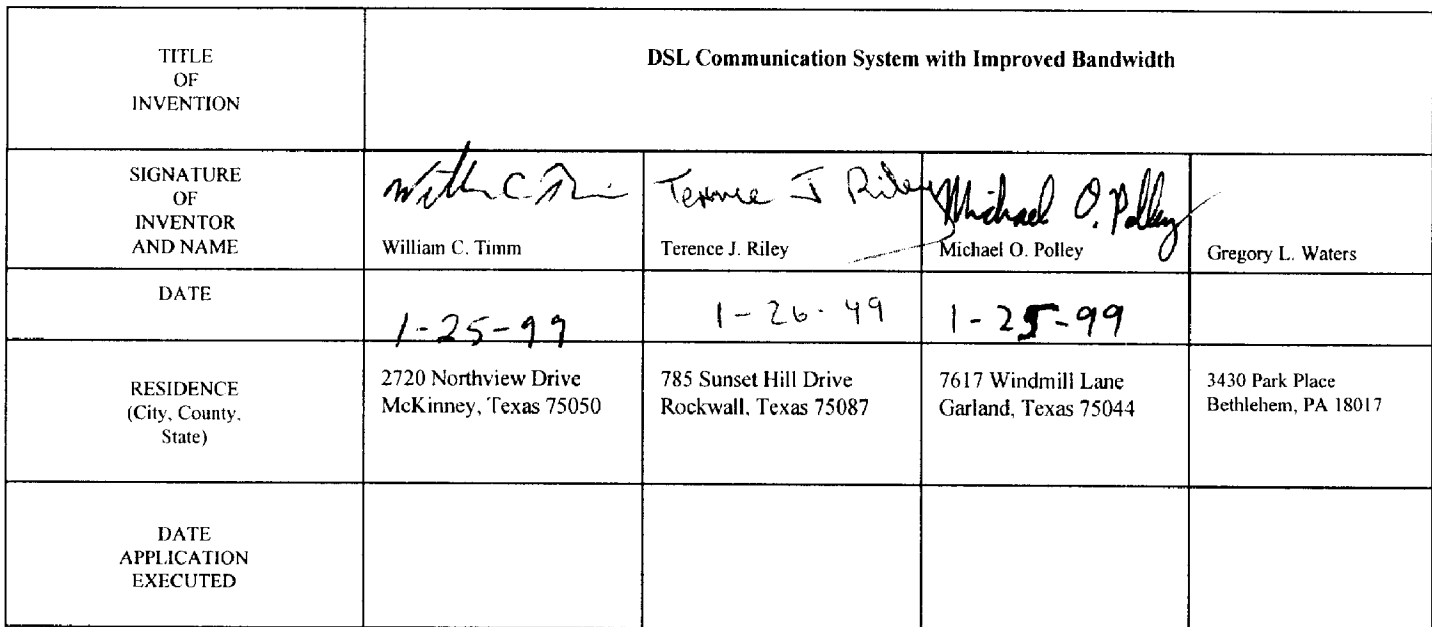 TITLE
OF
INVENTION
DSL Communication System with Improved Bandwidth
SIGNATURE
OF
INVENTOR
AND NAME
William C. Timm
Terence J Riley
Michael O. Polley
William C. Timm
Terence J. Riley
Michael O. Polley
Gregory L. Waters
DATE
1-25-99
1-26-99
1-25-99
RESIDENCE
(City, County,
State)
2720 Northview Drive
McKinney, Texas 75050
785 Sunset Hill Drive
Rockwall, Texas 75087
7617 Windmill Lane
Garland, Texas 75044
3430 Park Place
Bethlehem, PA 18017
DATE
APPLICATION
EXECUTED